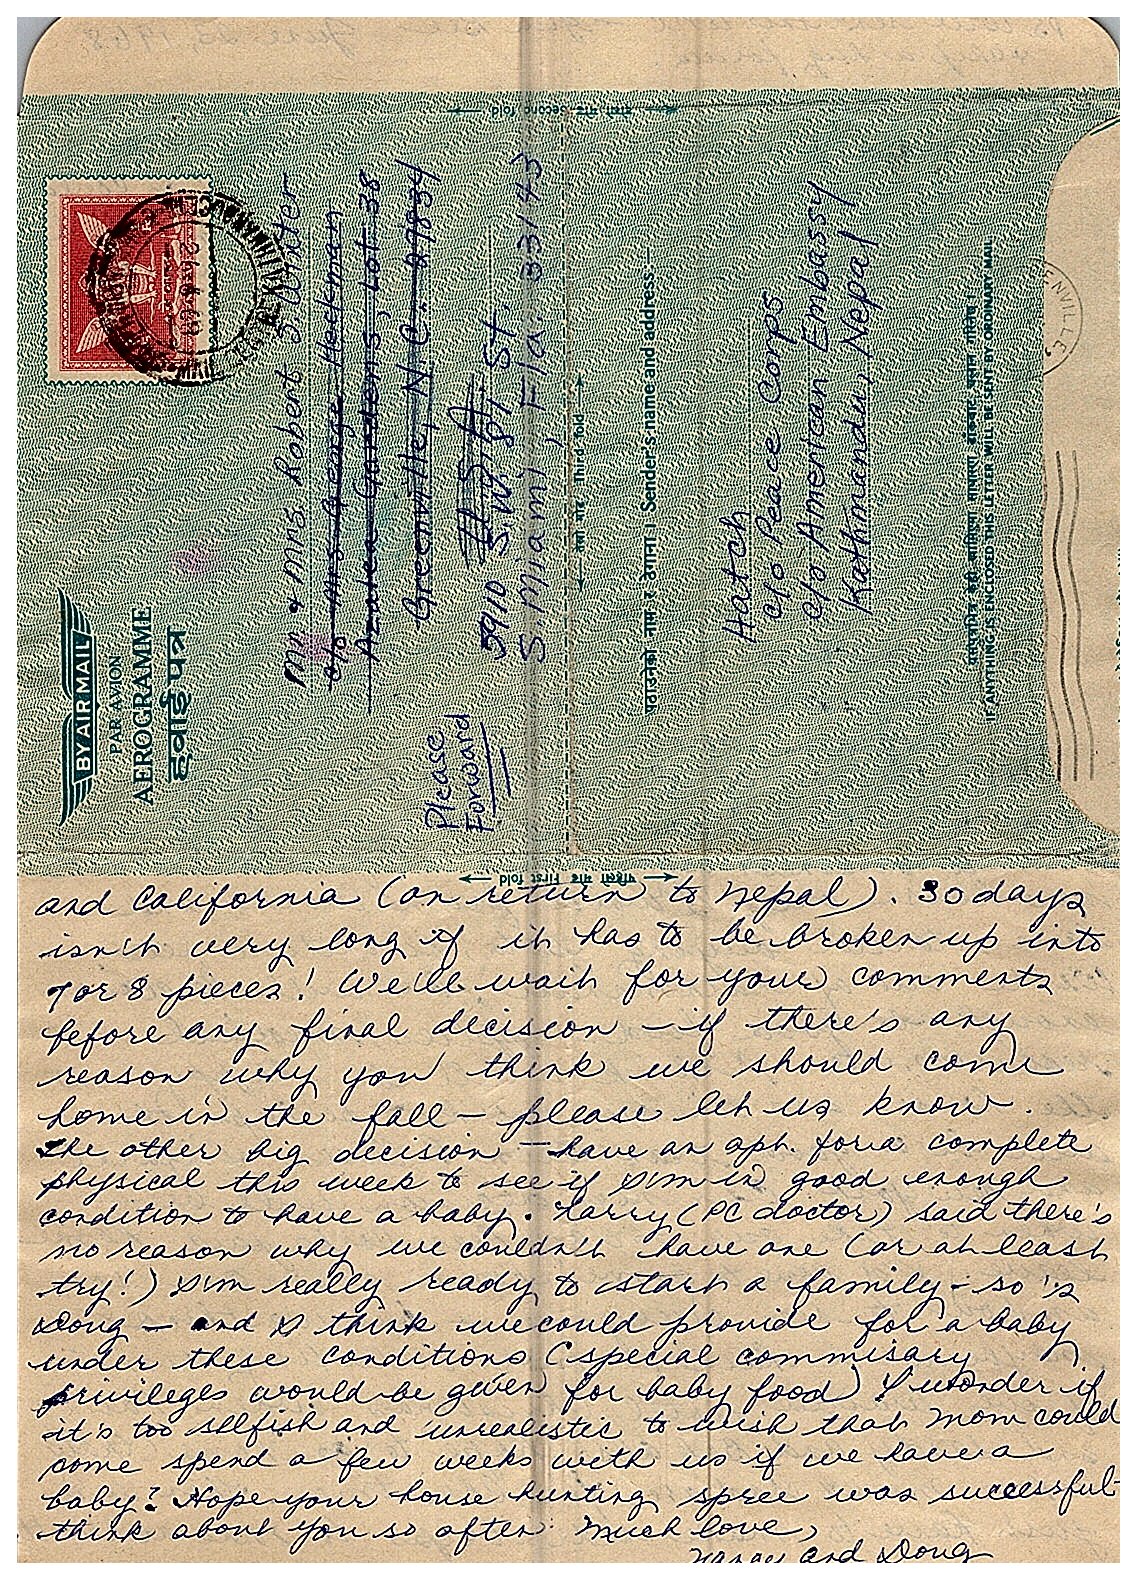 June 23, 1968
second fold
BY AIR MAIL
PAR AVION
AEROGRAMME
हवाई पत्र
Mr & Mrs. Robert S. Winter
c/o Mrs George Heckman
Azalea Gardens, Lot 38
Greenville, N.C. 27834
U.S.A.
5910 S.W. 81 St.
S. Miami, Fla. 33143
Please
Forward
तेस्रो मोड Third fold
पठाउनेको नाम र ठेगाना । Sender's name and address:—
Hatch
c/o Peace Corps
c/o American Embassy
Kathmandu, Nepal
IF ANYTHING IS ENCLOSED THIS LETTER WILL BE SENT BY ORDINARY MAIL
NVILLE
पहिलो मोड First fold
and California (on return to Nepal). 30 days
isn't very long if it has to be broken up into
7 or 8 pieces! We'll wait for your comments
before any final decision – if there's any
reason why you think we should come
home in the fall – please let us know.
The other big decision – have an apt. for a complete
physical this week to see if I'm in good enough
condition to have a baby. Larry (PC doctor) said there's
no reason why we couldn't have one (or at least
try!) I'm really ready to start a family – so is
Doug – and I think we could provide for a baby
under these conditions (special commisary
privileges would be given for baby food) I wonder if
it's too selfish and unrealistic to wish that Mom could
come spend a few weeks with us if we have a
baby? Hope your house hunting spree was successful –
think about you so often. Much love,
Nancy and Doug